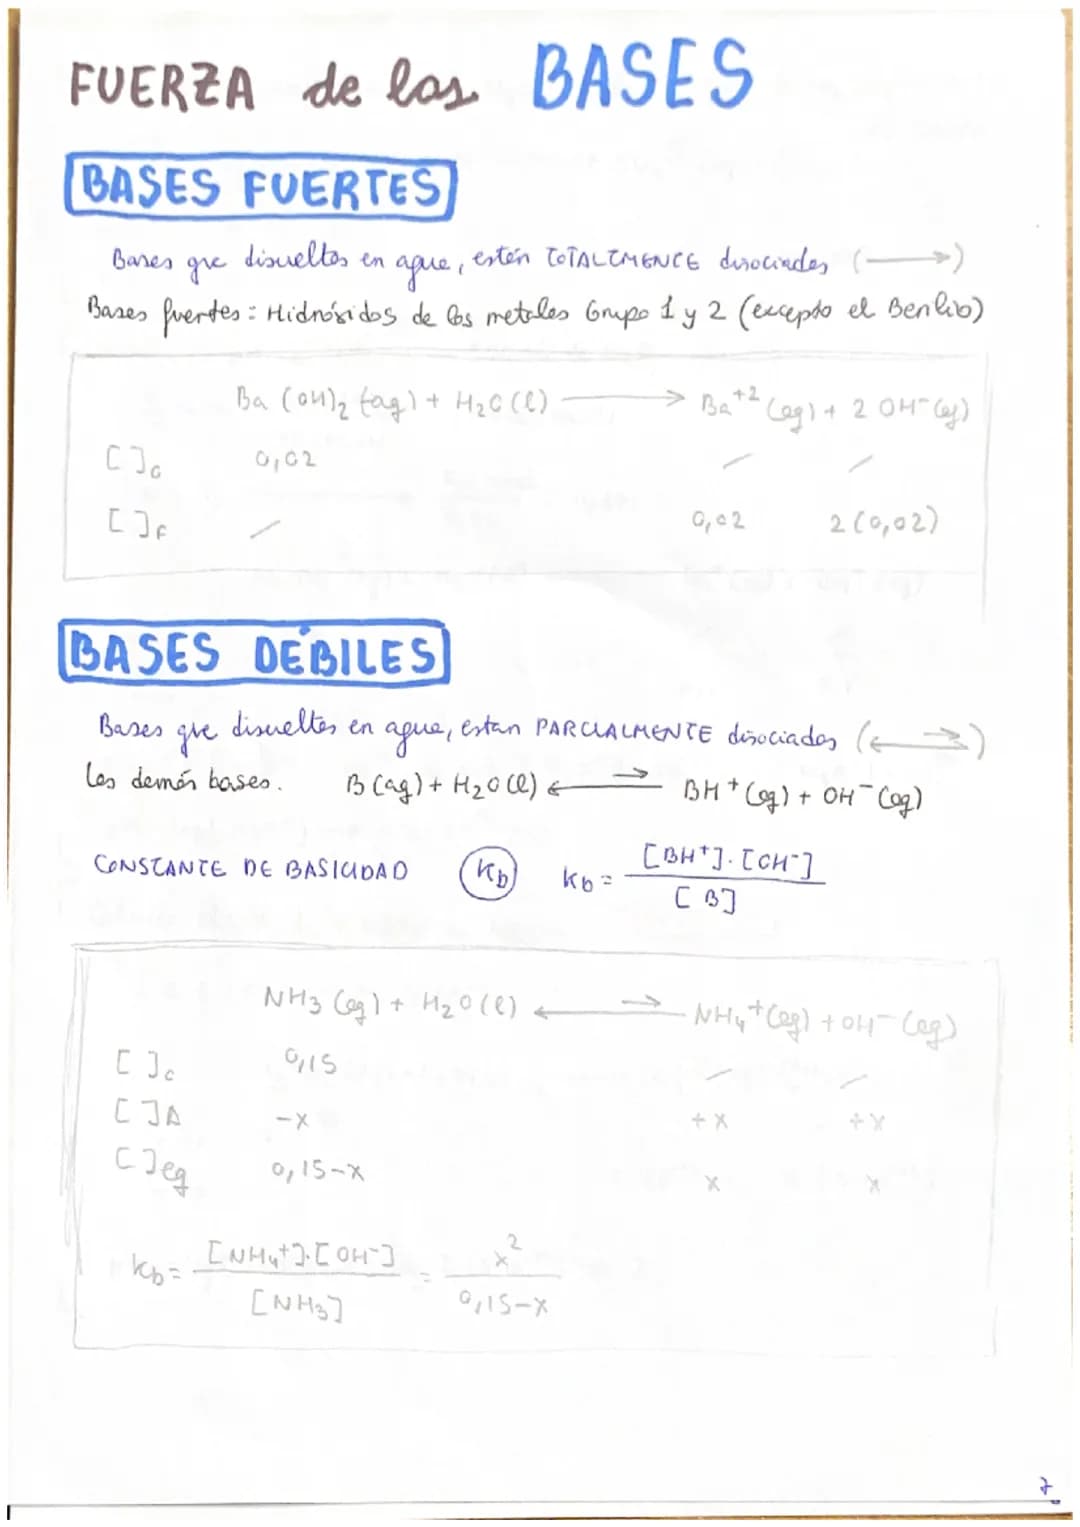 FUERZA de las BASES
BASES FUERTES
Bases que disueltas en agua, están TOTALMENTE disociadas (⟶)
Bases fuertes: Hidróxidos de los metales Grupo 1 y 2 (excepto el Berilio)
Ba(OH)₂ (aq) + H₂O(l) ⟶ Ba⁺² (aq) + 2 OH⁻(aq)
[ ]₀ 0,02 / /
[ ]F / 0,02 2(0,02)
BASES DÉBILES
Bases que disueltas en agua, estan PARCIALMENTE disociadas (⇄)
las demás bases. B(aq) + H₂O(l) ⇄ BH⁺(aq) + OH⁻(aq)
CONSTANTE DE BASICIDAD Kb Kb = [BH⁺]·[OH⁻] / [B]
NH3(aq) + H₂O(l) ⇄ NH₄⁺(aq) + OH⁻(aq)
[ ]₀ 0,15 / /
[ ]Δ -x +x +x
[ ]eq 0,15-x x x
Kb = [NH₄⁺]·[OH⁻] / [NH₃] = x² / 0,15-x
7